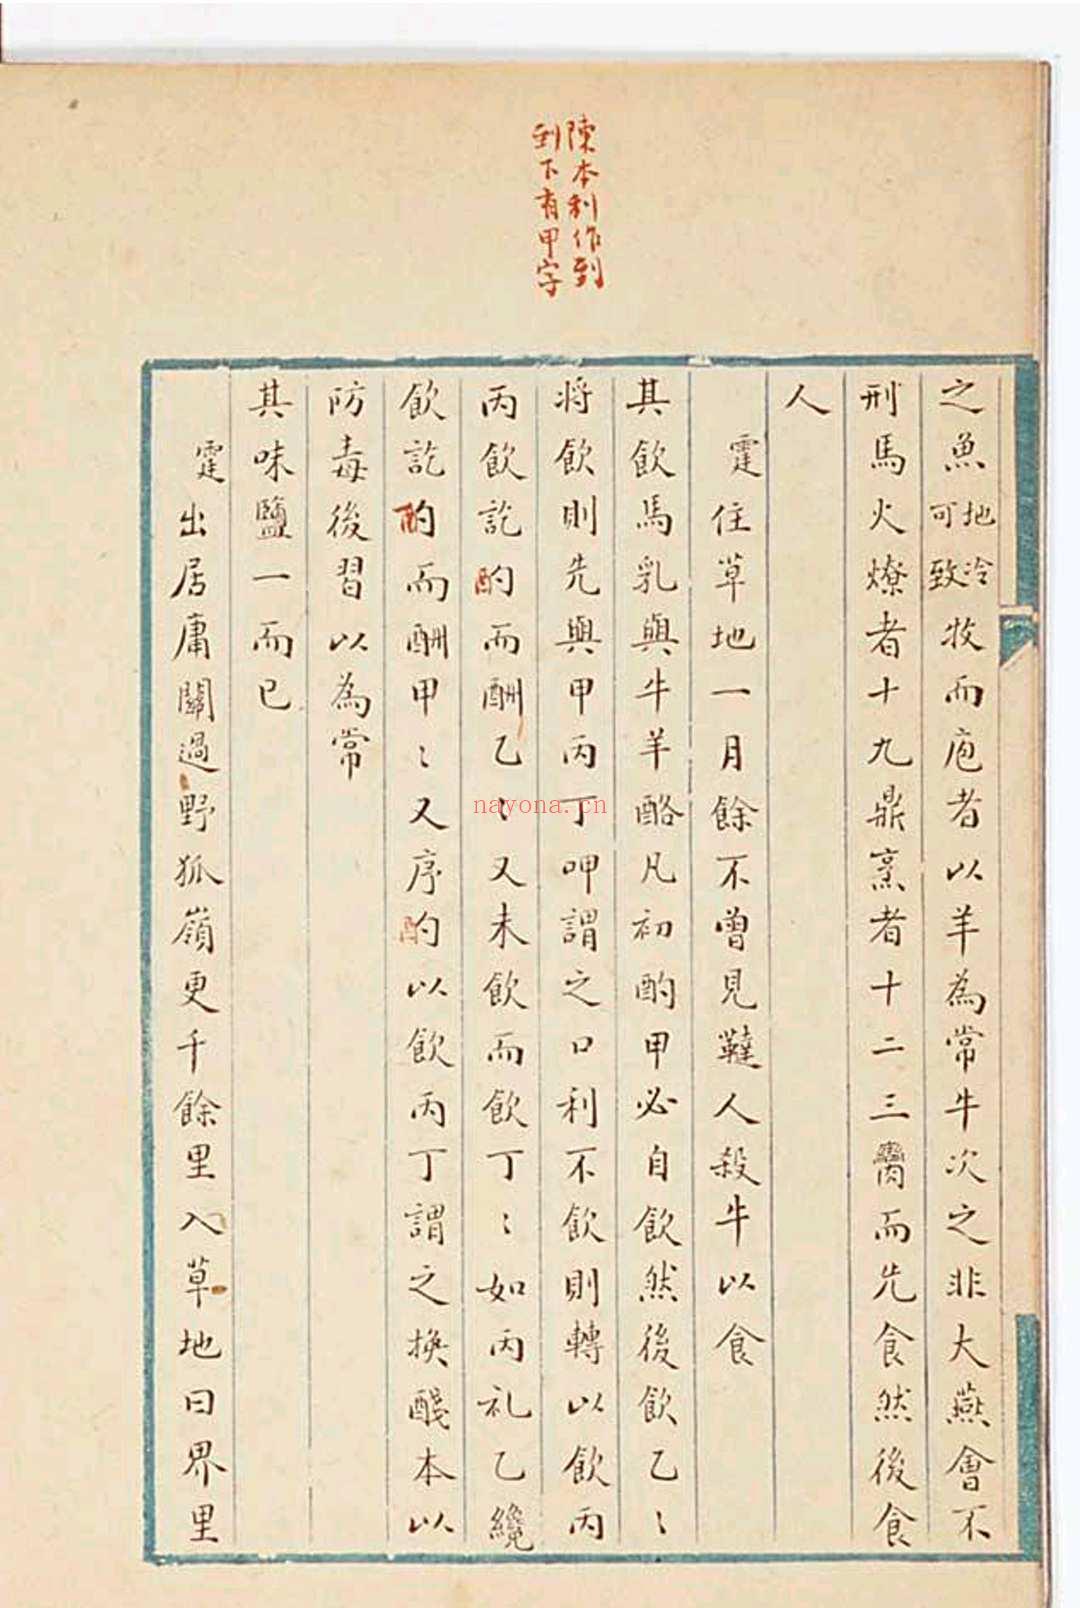 陳本利作到
到下有甲字
之魚地冷可致牧而庖者以羊為常牛次之非大燕會不
刑馬火燎者十九鼎烹者十二三臠而先食然後食
人
霆住草地一月餘不曾見韃人殺牛以食
其飲馬乳與牛羊酪凡初酌甲必自飲然後飲乙〻
將飲則先與甲丙丁呷謂之口利不飲則轉以飲丙
丙飲訖酌而酬乙〻又未飲而飲丁〻如丙礼乙纔
飲訖酌而酬甲〻又序酌以飲丙丁謂之換醆本以
防毒後習以為常
其味鹽一而已
霆出居庸關過野狐嶺更千餘里入草地曰界里
nayona.cn